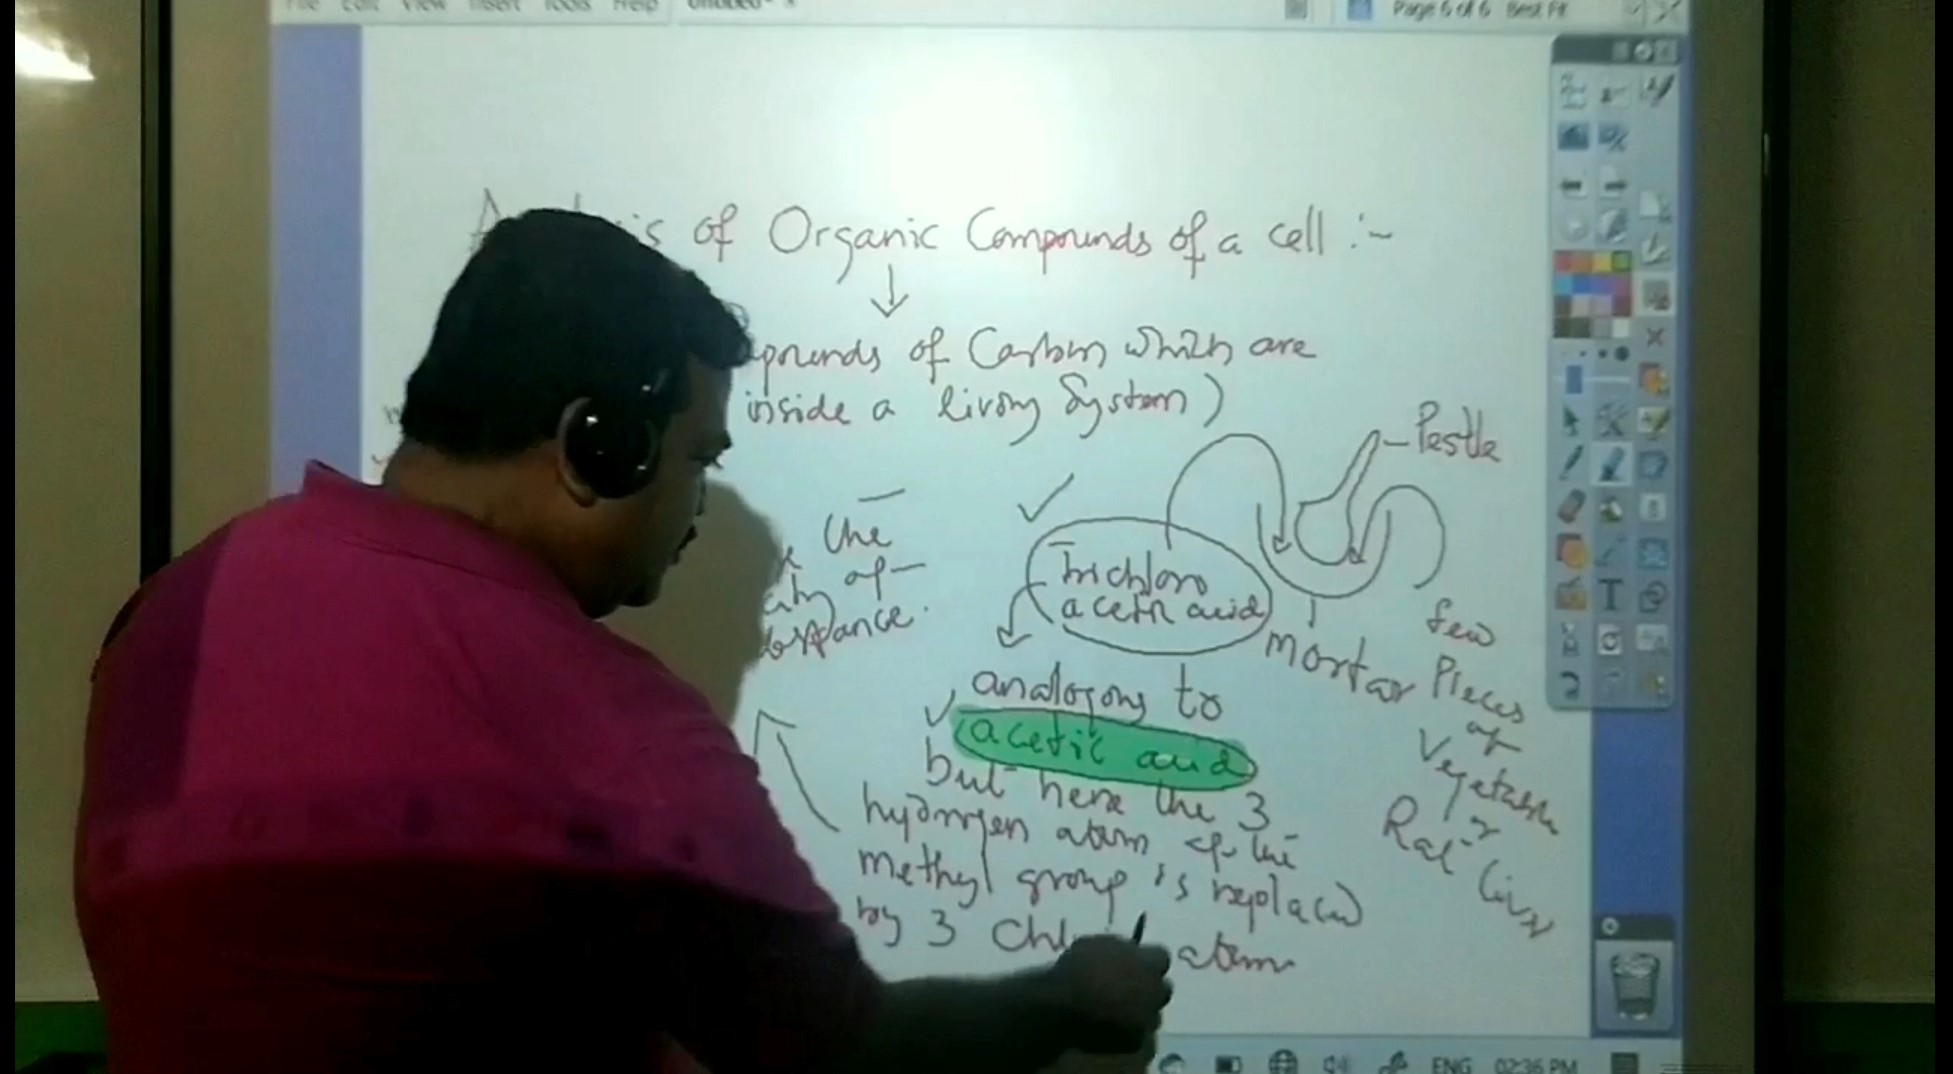 File Edit View Insert Tools Help
Page 6 of 6 Best Fit
of Organic Compounds of a cell :-
pounds of Carbon which are
inside a living System)
Pestle
the
of
Trichloro
acetic acid
mortar
few
Pieces
of
Vegetable
or
Rat liver
analogous to
acetic acid
but here the 3
hydrogen atom of the
methyl group is replaced
by 3 atom
T
ENG 02:36 PM